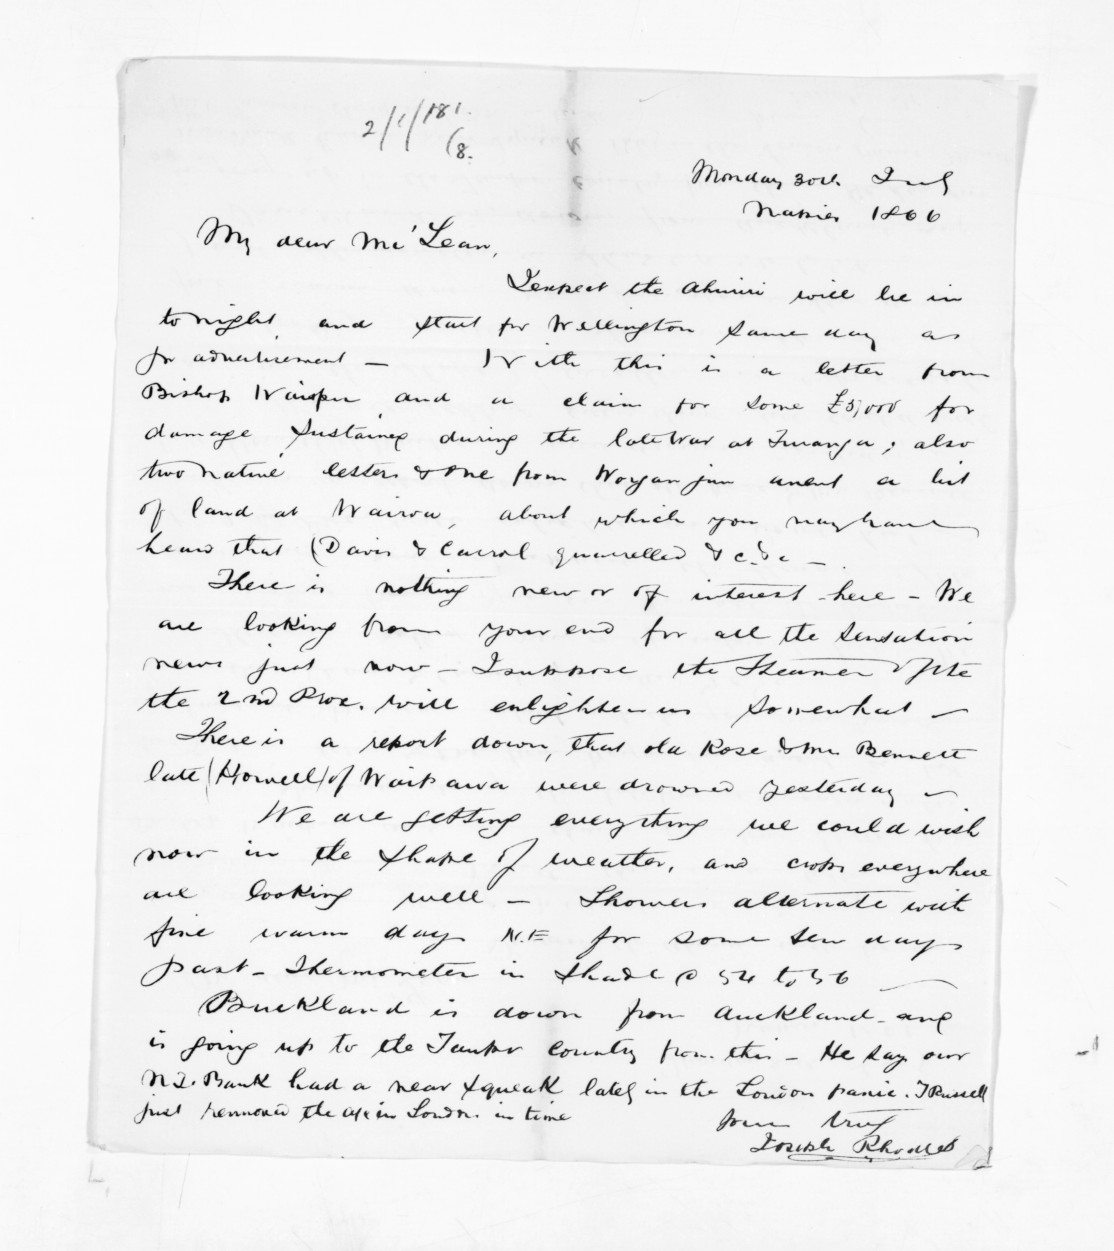 2/1/181.
/8.
Monday 30th July
Napier 1866
My dear Mc'Lean,
I expect the Ahuriri will be in
to night and start for Wellington same day as
pr advertisement — With this is a letter from
Bishop and a claim for some £5,000 for
damage sustained during the late War at Turanga; also
two native letters & one from Worgan jun anent a bit
of land at Wairoa, about which you may have
heard that (Davis & Carrol quarrelled &c. &c —
There is nothing new or of interest here — We
are looking from your end for all the sensation
news just now — I suppose the Steamer after
the 2nd Prox. will enlighten us somewhat —
There is a report down, that old Rose & Mr Bennett
late (Howell) of Waikawa were drowned yesterday —
We are getting everything we could wish
now in the shape of weather, and crops everywhere
are looking well — Showers alternate with
fine warm days N.E for some few days
past — Thermometer in shade @ 54 to 56
Buckland is down from Auckland — and
is going up to the Taupo country from this — He says our
N.Z. Bank had a near squeak lately in the London panic. T Russell
just removed the a/c in London in time
Yours truly
Joseph Rhodes